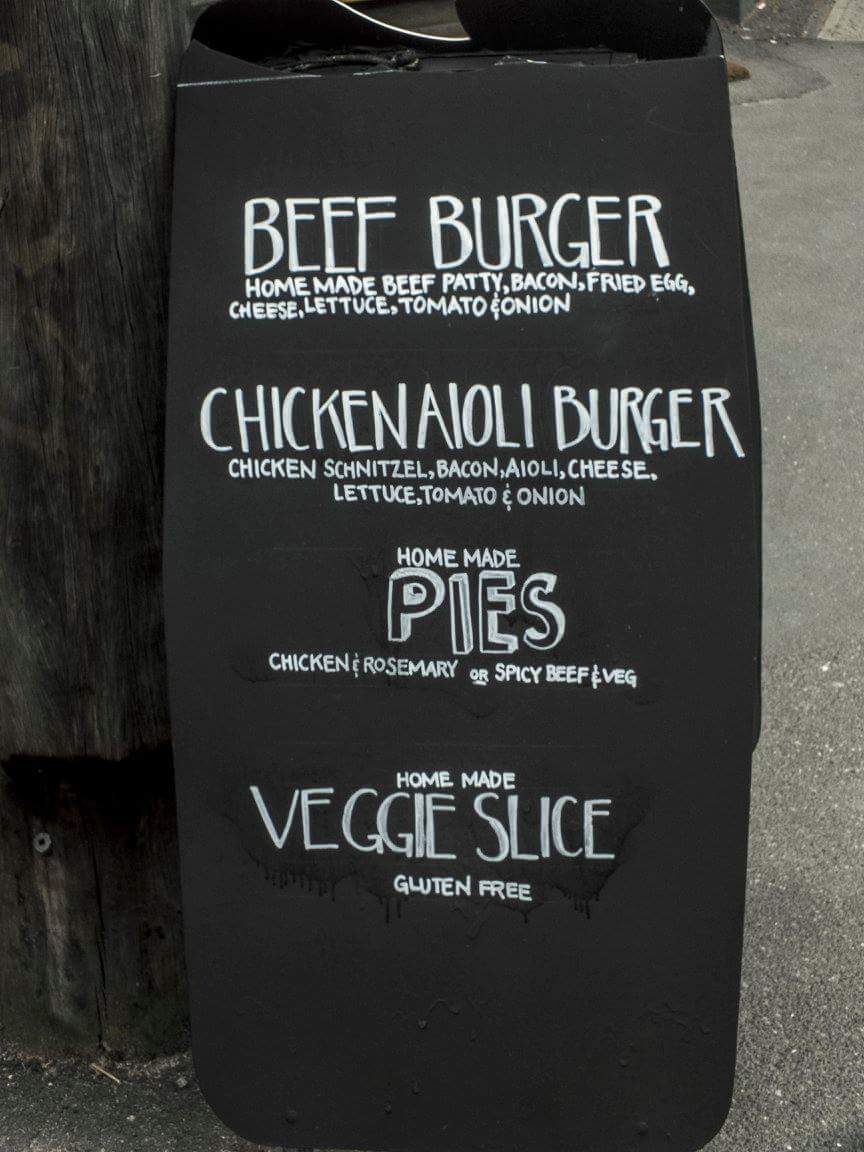 BEEF BURGER
HOME MADE BEEF PATTY, BACON, FRIED EGG,
CHEESE, LETTUCE, TOMATO & ONION
CHICKEN AIOLI BURGER
CHICKEN SCHNITZEL, BACON, AIOLI, CHEESE,
LETTUCE, TOMATO & ONION
HOME MADE
PIES
CHICKEN & ROSEMARY OR SPICY BEEF & VEG
HOME MADE
VEGGIE SLICE
GLUTEN FREE